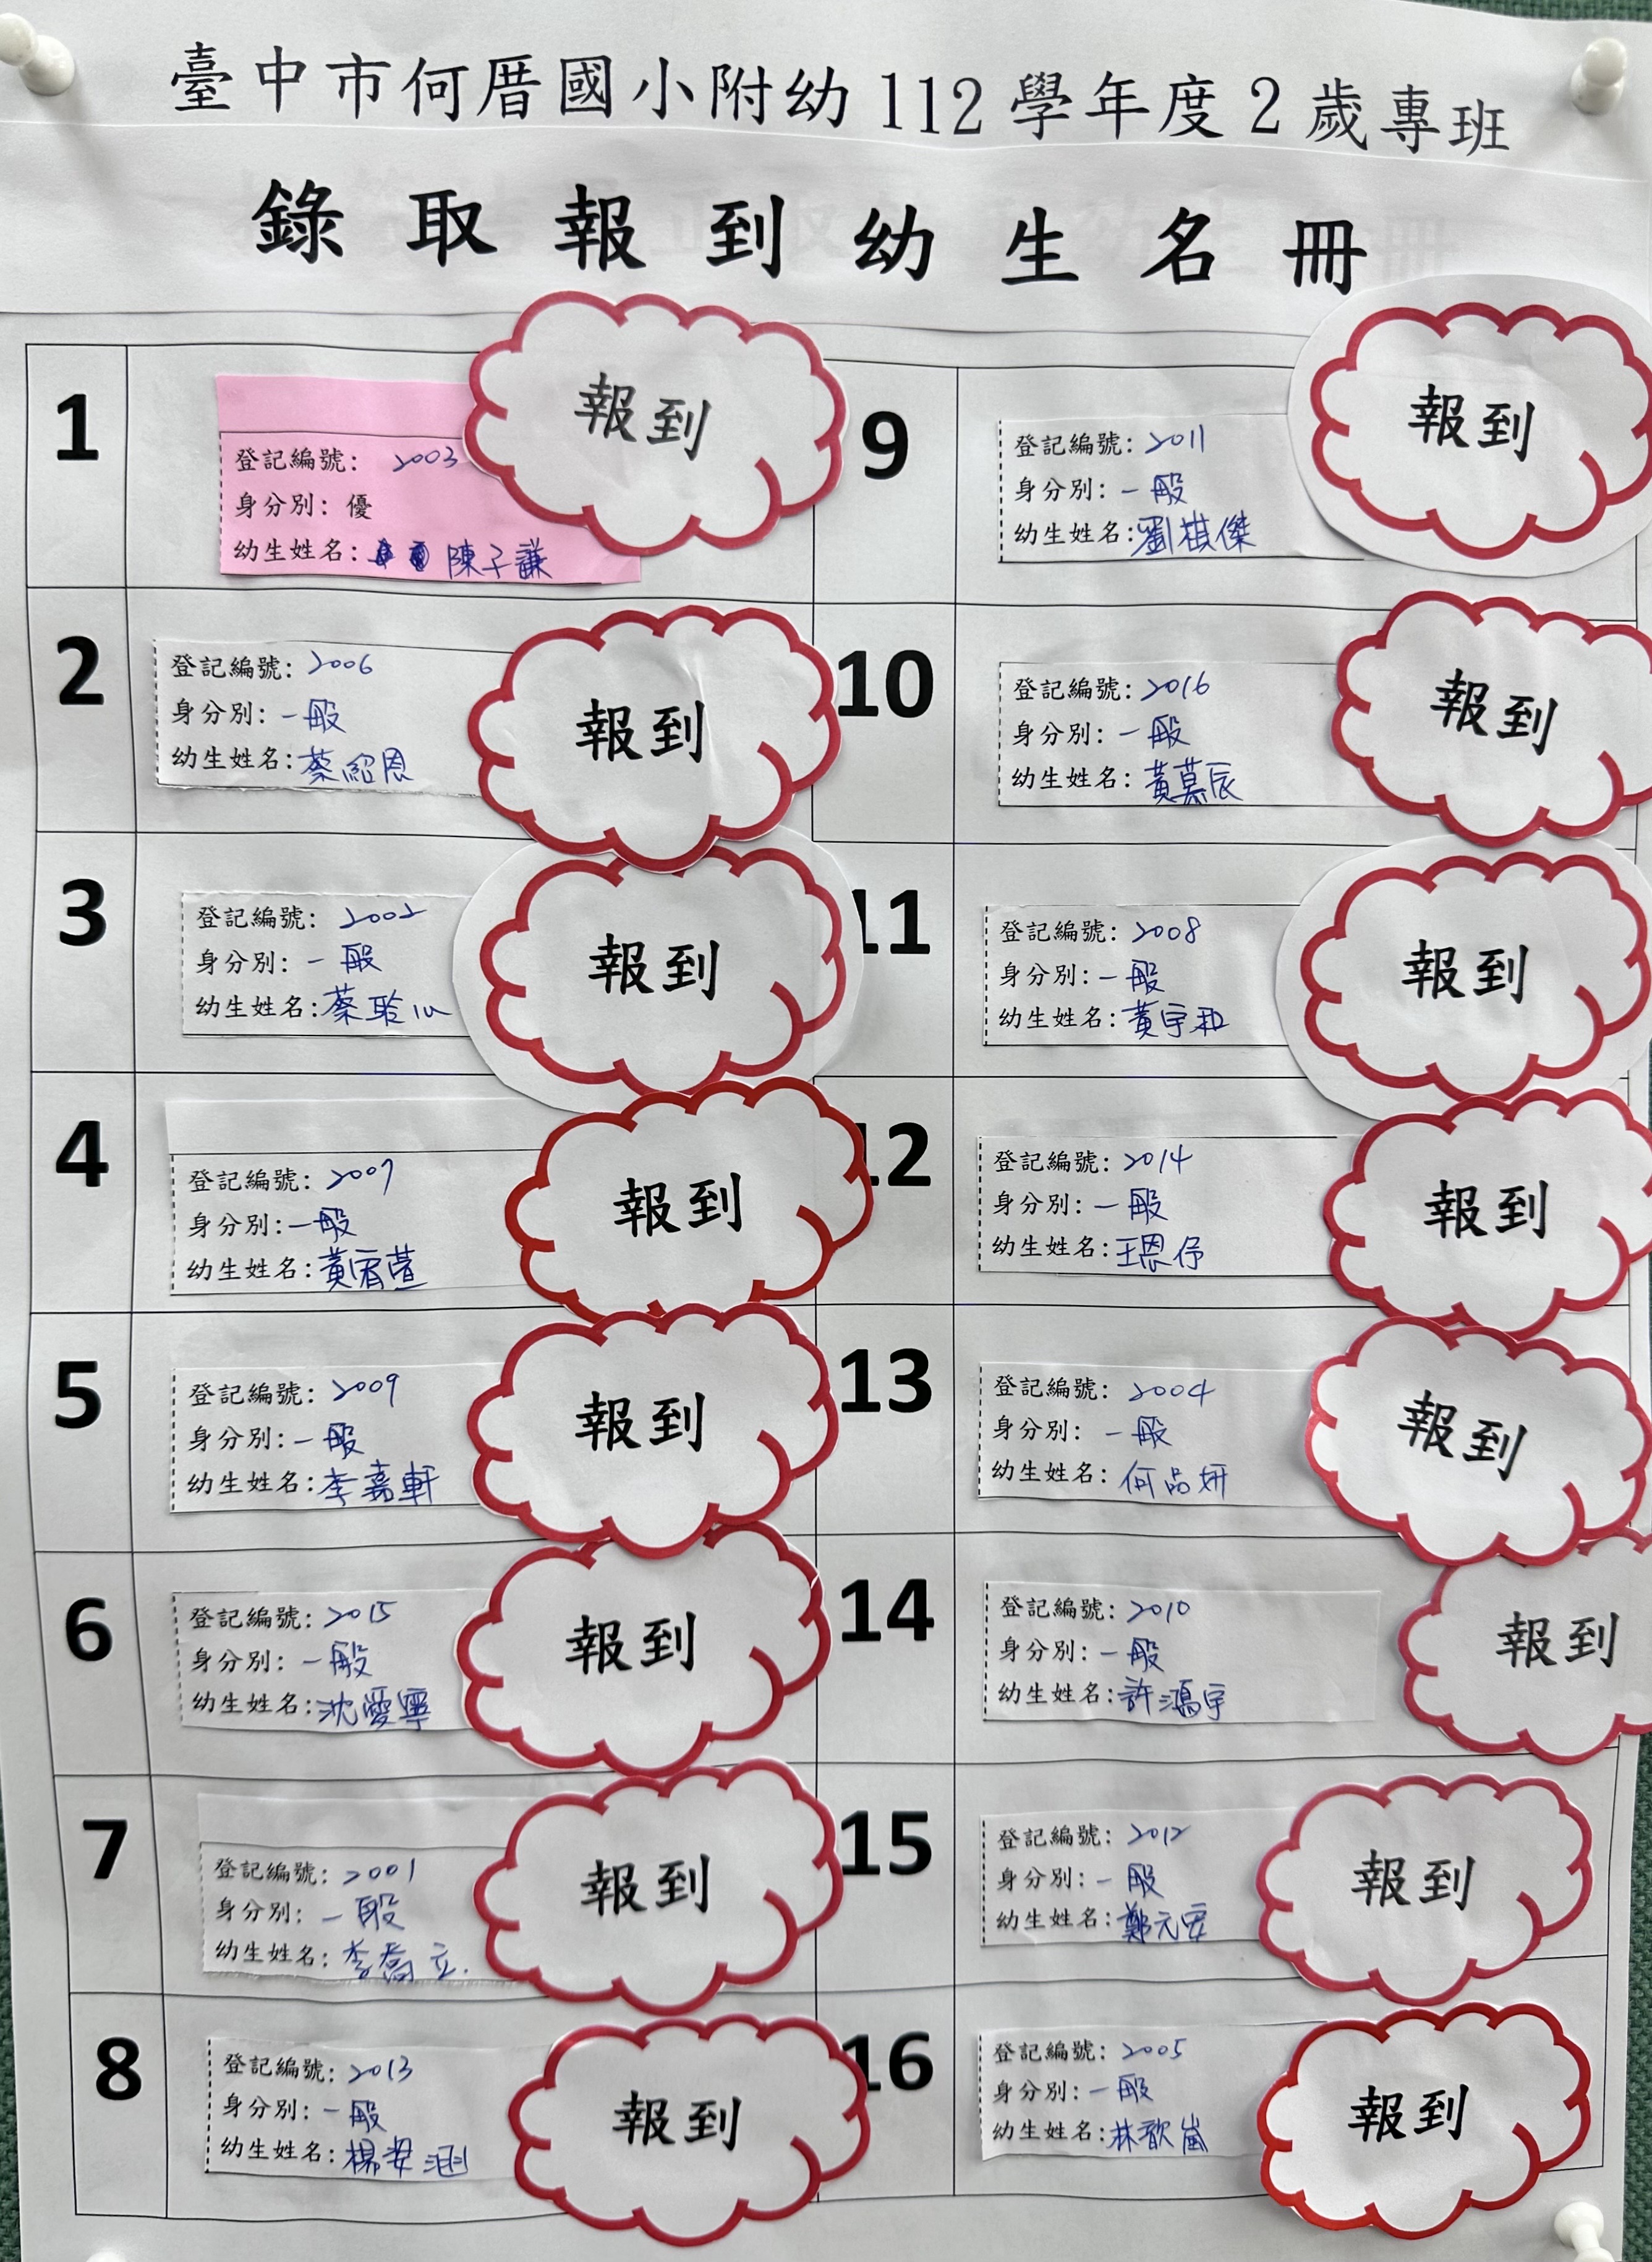 臺中市何厝國小附幼112學年度2歲專班
錄取報到幼生名冊
1
登記編號: 2003
身分別: 優
幼生姓名: 陳子謙
報到
2
登記編號: 2006
身分別: 一般
幼生姓名: 蔡紹恩
報到
3
登記編號: 2002
身分別: 一般
幼生姓名: 蔡聆心
報到
4
登記編號: 2007
身分別: 一般
幼生姓名: 黃宥萱
報到
5
登記編號: 2009
身分別: 一般
幼生姓名: 李嘉軒
報到
6
登記編號: 2015
身分別: 一般
幼生姓名: 沈愛寧
報到
7
登記編號: 2001
身分別: 一般
幼生姓名: 李喬立.
報到
8
登記編號: 2013
身分別: 一般
幼生姓名: 楊婜涵
報到
9
登記編號: 2011
身分別: 一般
幼生姓名: 劉棋傑
報到
10
登記編號: 2016
身分別: 一般
幼生姓名: 黃慕辰
報到
11
登記編號: 2008
身分別: 一般
幼生姓名: 黃宇和
報到
12
登記編號: 2014
身分別: 一般
幼生姓名: 王恩伃
報到
13
登記編號: 2004
身分別: 一般
幼生姓名: 何品妍
報到
14
登記編號: 2010
身分別: 一般
幼生姓名: 許鴻宇
報到
15
登記編號: 2012
身分別: 一般
幼生姓名: 鄭元
報到
16
登記編號: 2005
身分別: 一般
幼生姓名: 林歆嵐
報到